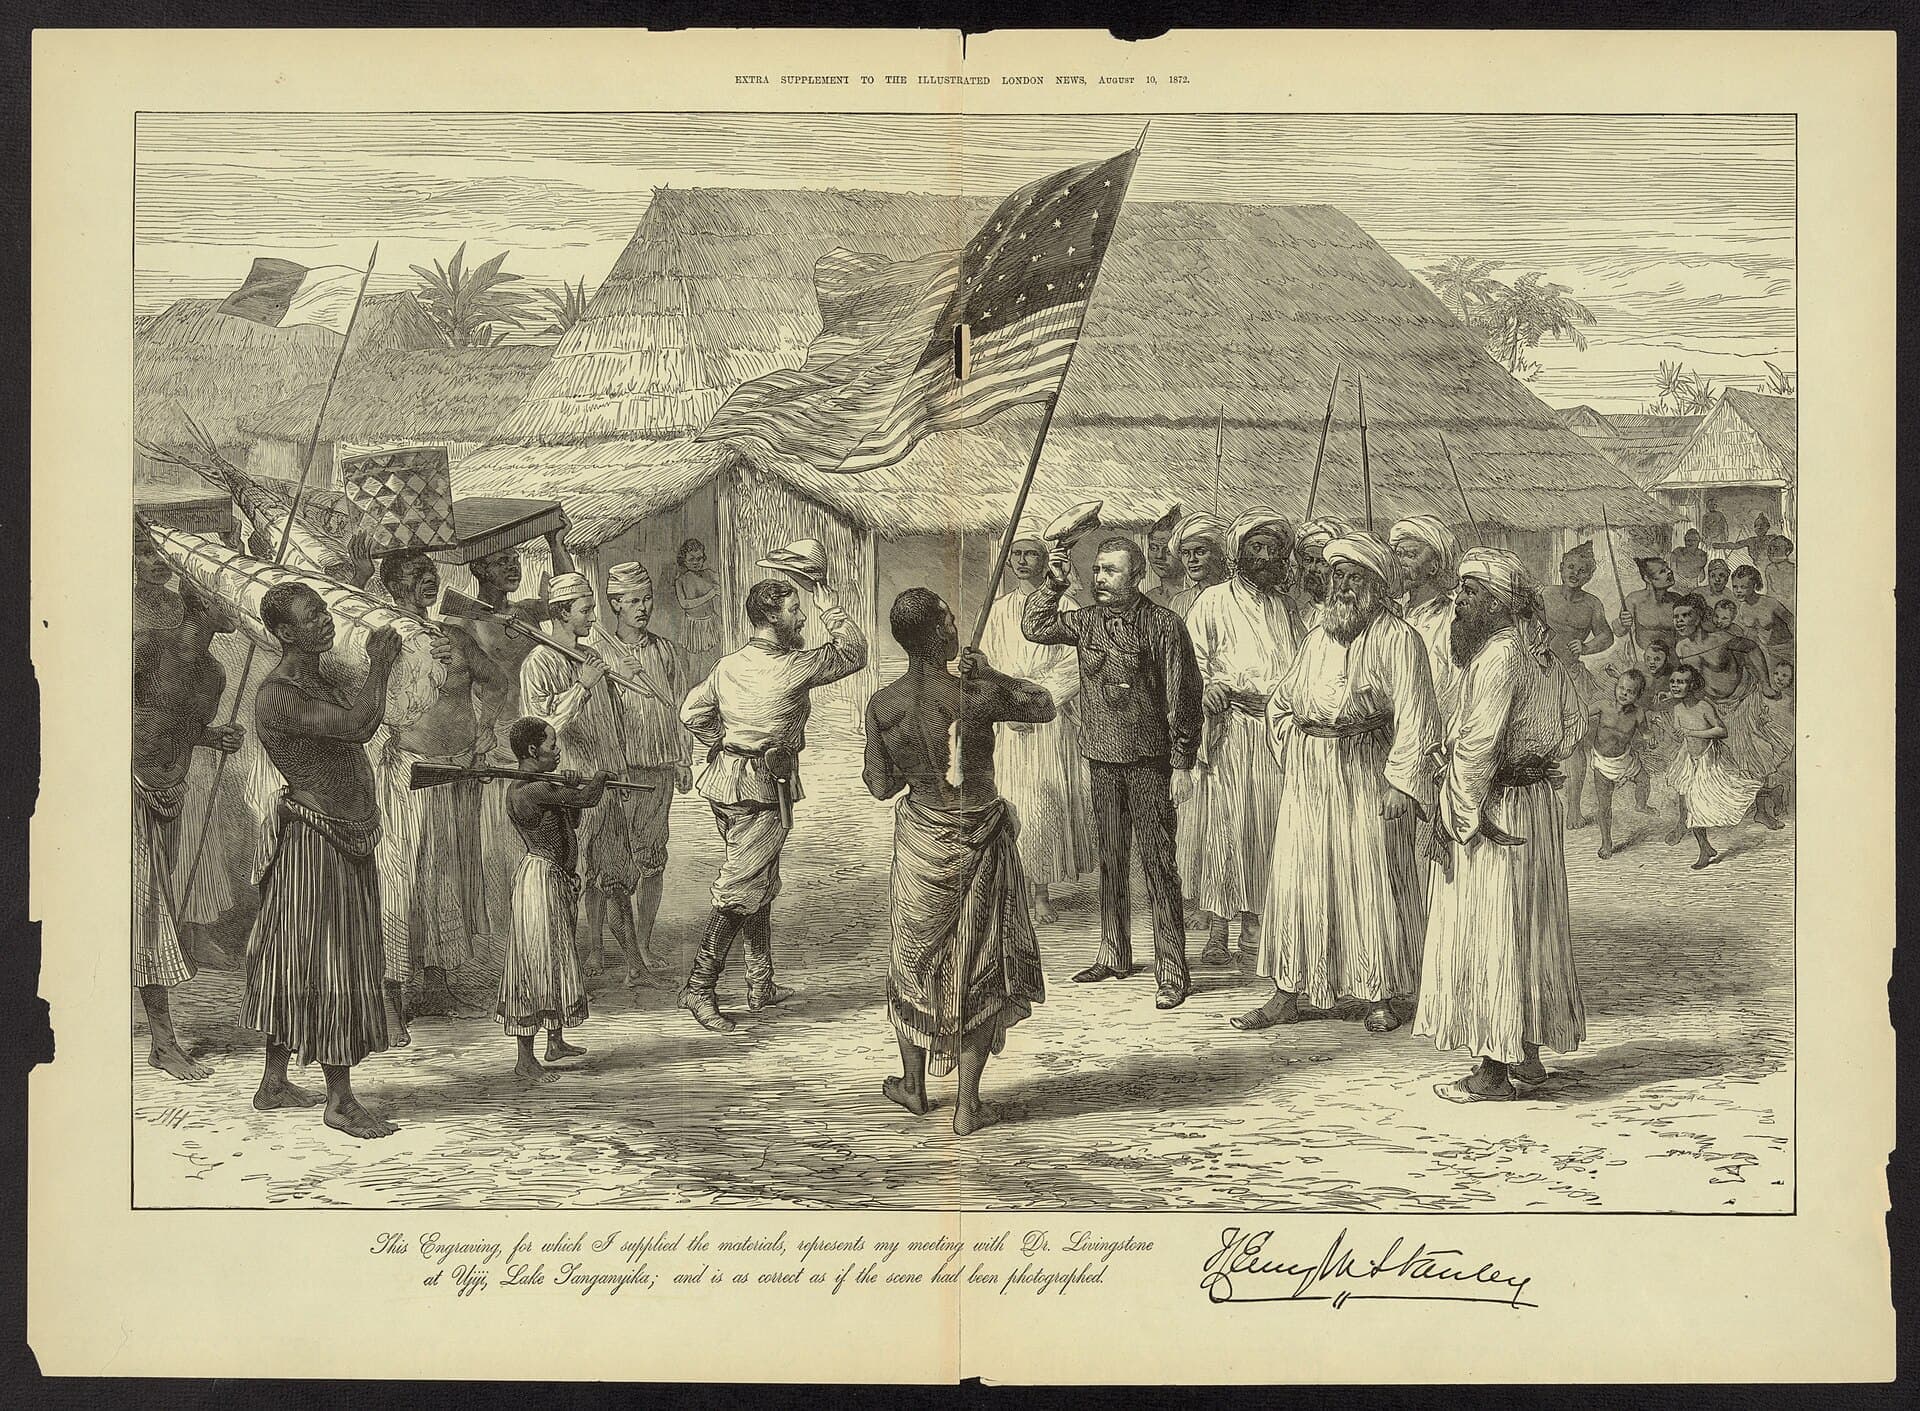 EXTRA SUPPLEMENT TO THE ILLUSTRATED LONDON NEWS, AUGUST 10, 1872.
This Engraving, for which I supplied the materials, represents my meeting with Dr. Livingstone
at Ujiji, Lake Tanganyika; and is as correct as if the scene had been photographed.
Henry M Stanley